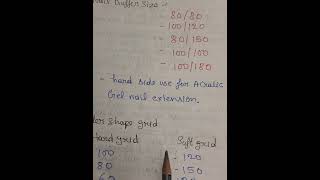 Buffer Size :-
80/80
- 100/120
- 80/150
- 100/100
- 100/180
- hard side use for Acrylic
Gel nail extension.
Shape grid
hard grid Soft grid
100 - 120
80 - 150